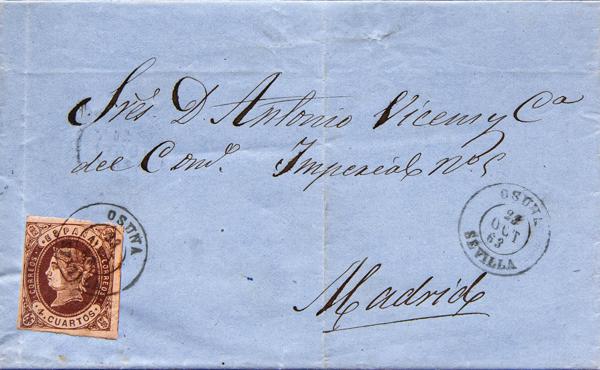 Sres. D. Antonio Vicens y Ca
del Cond. Imperial No 5
Madrid
OSUNA
OSUNA
OCT
63
SEVILLA
ESPAÑA
CORREOS
CORREOS
4 CUARTOS